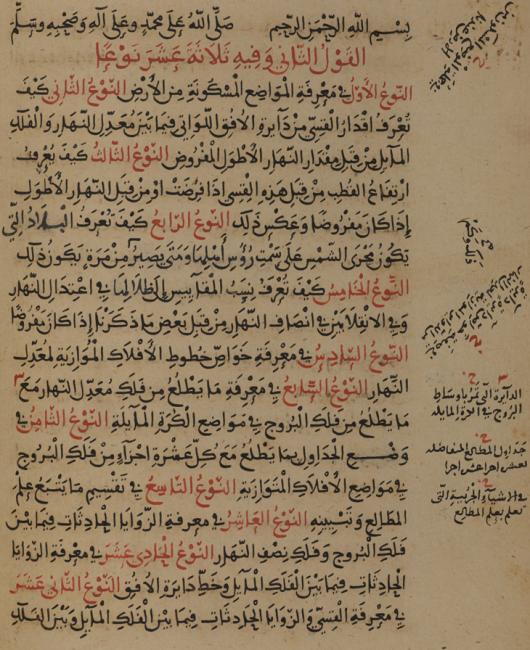 بسم الله الرحمن الرحيم صلى الله على محمد وعلى آله وصحبه وسلم
القول الثاني وفيه ثلاثة عشر نوعا
النوع الأول في معرفة المواضع المسكونة من الأرض النوع الثاني كيف
تعرف اقدار القسي من دايرة الافق اللواتي فيما بين معدل النهار والفلك
المايل من قبل مقدار النهار الاطول المفروض النوع الثالث كيف يعرف
ارتفاع القطب من قبل هذه القسي اذا فرضت او من قبل النهار الاطول
إذا كان مفروضا وعكس ذلك النوع الرابع كيف تعرف البلاد التي
يكون مجرى الشمس على سمت رؤس أهلها ومتى يصير وكم مرة يكون ذلك
النوع الخامس كيف تعرف نسب المقاييس إلى ظلالها في اعتدال النهار
وفي الانقلابين في انصاف النهار من قبل بعض ما ذكرنا إذا كان مفروضا
النوع السادس في معرفة خواص خطوط الأفلاك الموازية لمعدل
النهار النوع السابع في معرفة ما يطلع من فلك معدل النهار مع
ما يطلع من فلك البروج في مواضع الكرة المايلة النوع الثامن في
وضع الجداول بما يطلع مع كل عشرة اجزآء من فلك البروج
في مواضع الأفلاك المتوازية النوع التاسع في تقسيم ما يتبع علم
المطالع وتبيينه النوع العاشر في معرفة الزوايا الحادثات فيما بين
فلك البروج وفلك نصف النهار النوع الحادي عشر في معرفة الزوايا
الحادثات فيما بين الفلك المايل وخط دايرة الافق النوع الثاني عشر
في معرفة القسي والزوايا الحادثات فيما بين الفلك المايل وبين الفلك
الدايرة التي تمر باوساط
البروج في الكرة المايله
جداول المطالع المتفاضله
الاشيا الجزئية التي
تعلم بعلم المطالع